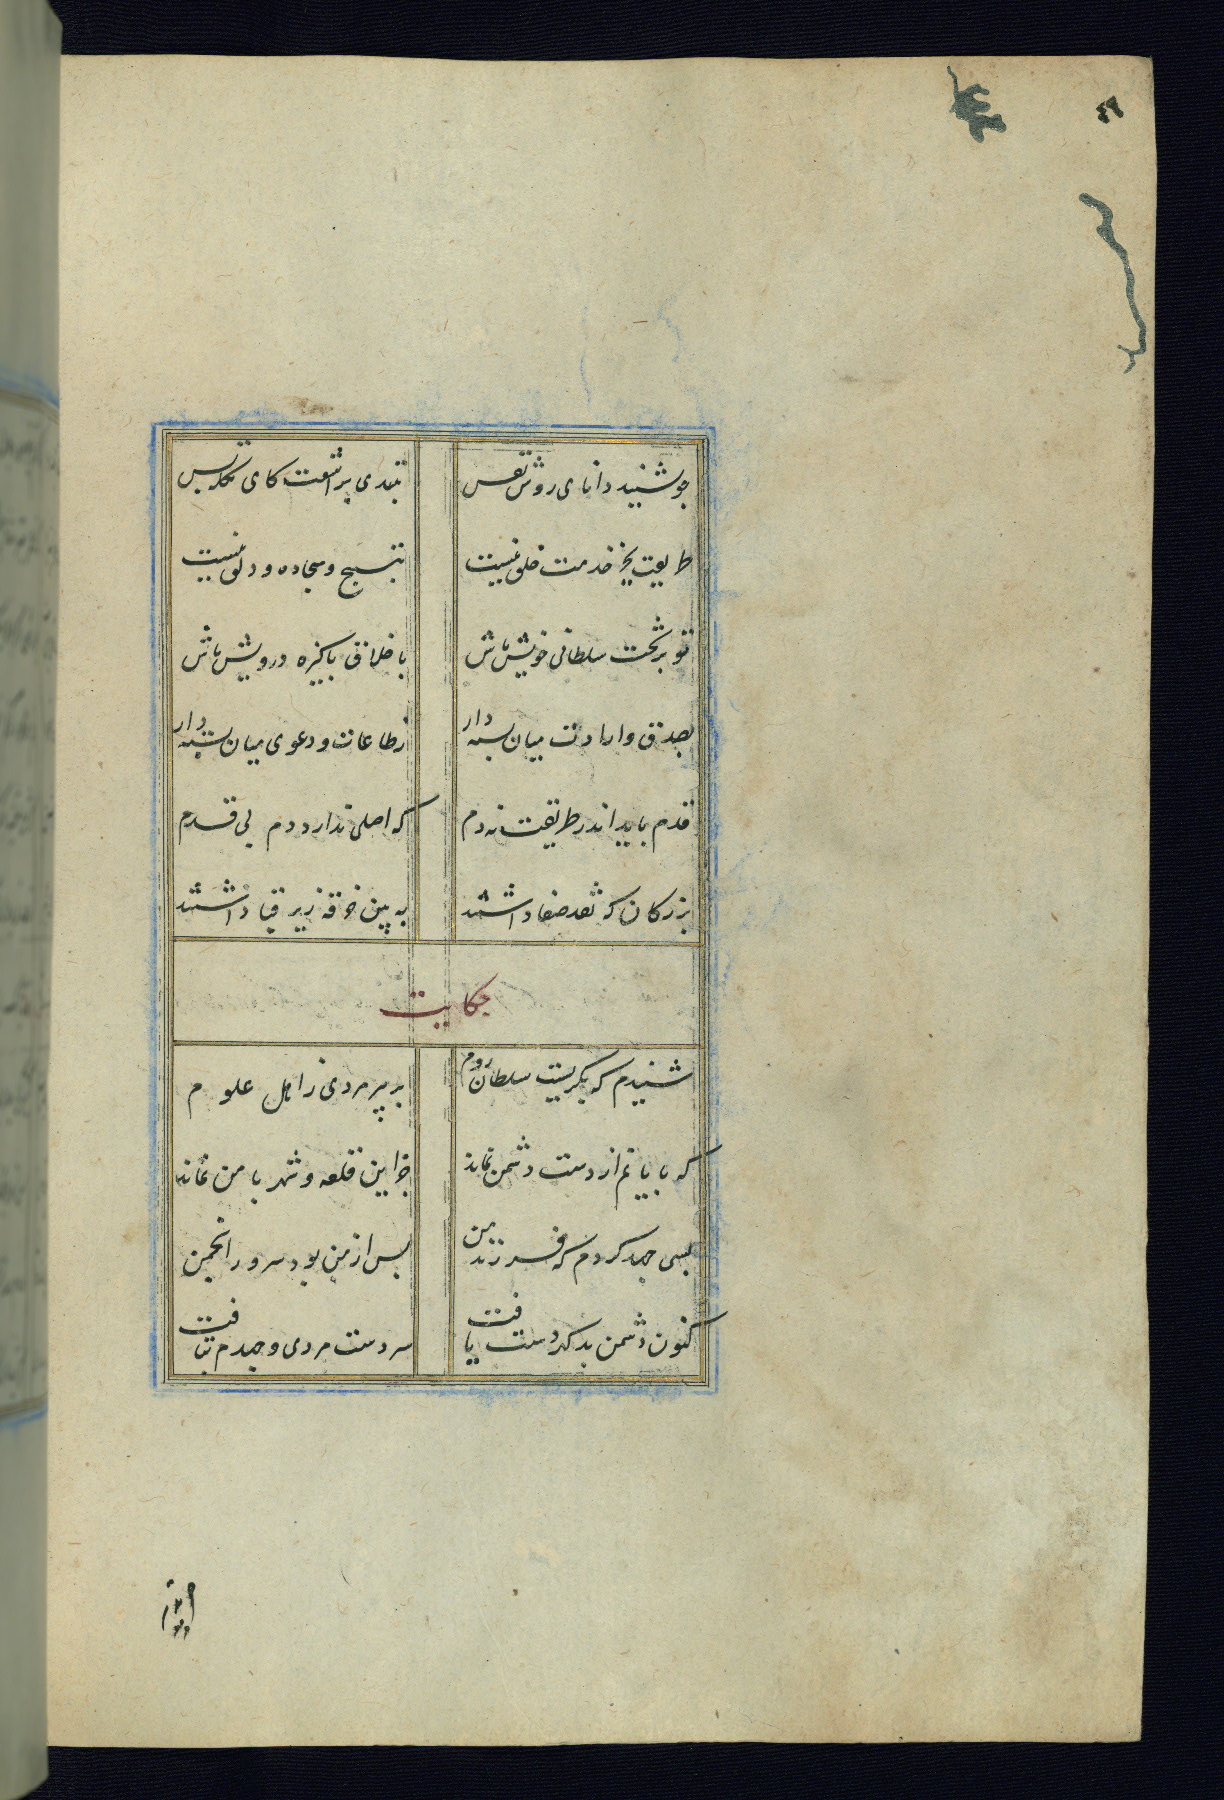 ٤٦
چو شنید دانای روشن نفس
بتندی برآشفت کای تکله بس
طریقت بجز خدمت خلق نیست
بتسبیح و سجاده و دلق نیست
تو بر تخت سلطانی خویش باش
باخلاق پاکیزه درویش باش
بصدق و ارادت میان بسته دار
زطاعات و دعوی میان بسته دار
قدم باید اندر طریقت نه دم
که اصلی ندارد دم بی قدم
بزرگان که نقد صفا داشتند
به پین خرقه زیر قبا داشتند
حکایت
شنیدم که بگریست سلطان روم
بر پیر مردی ز اهل علوم
که پایانم از دست دشمن نماند
جز این قلعه و شهر با من نماند
بسی جهد کردم که فرزند من
پس از من بود سرور انجمن
کنون دشمن بد گهر دست یافت
سر دست مردی و جهدم بتافت